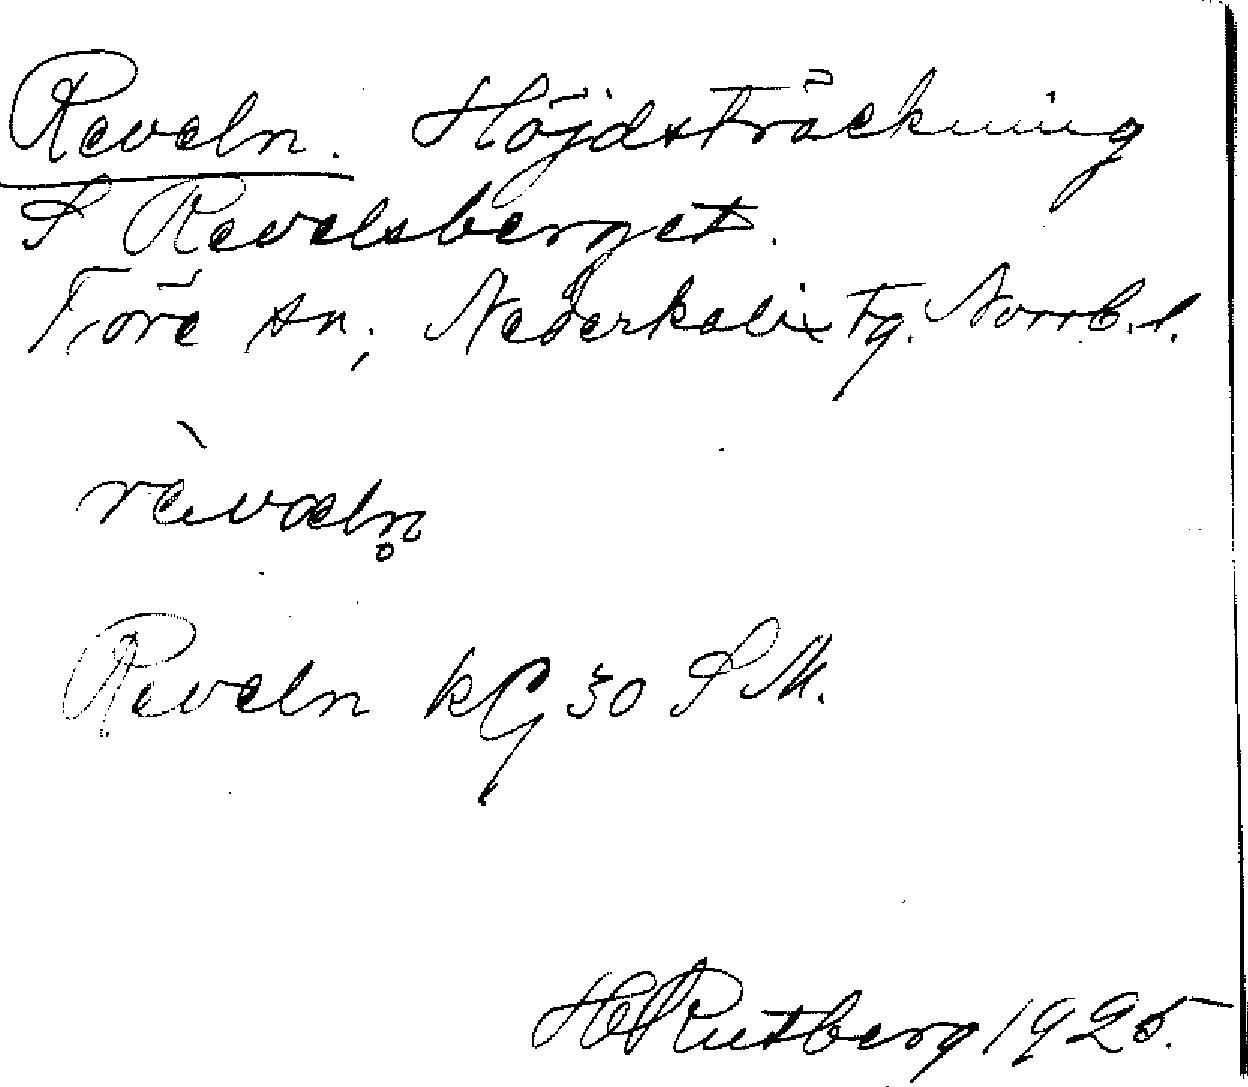 Reveln. Höjdsträckning
S Revelsberget.
Töre sn, Nederkalix tg. Norrb. l.
rèvæln̥
Reveln kG 30 S M.
H Rutberg 1925.